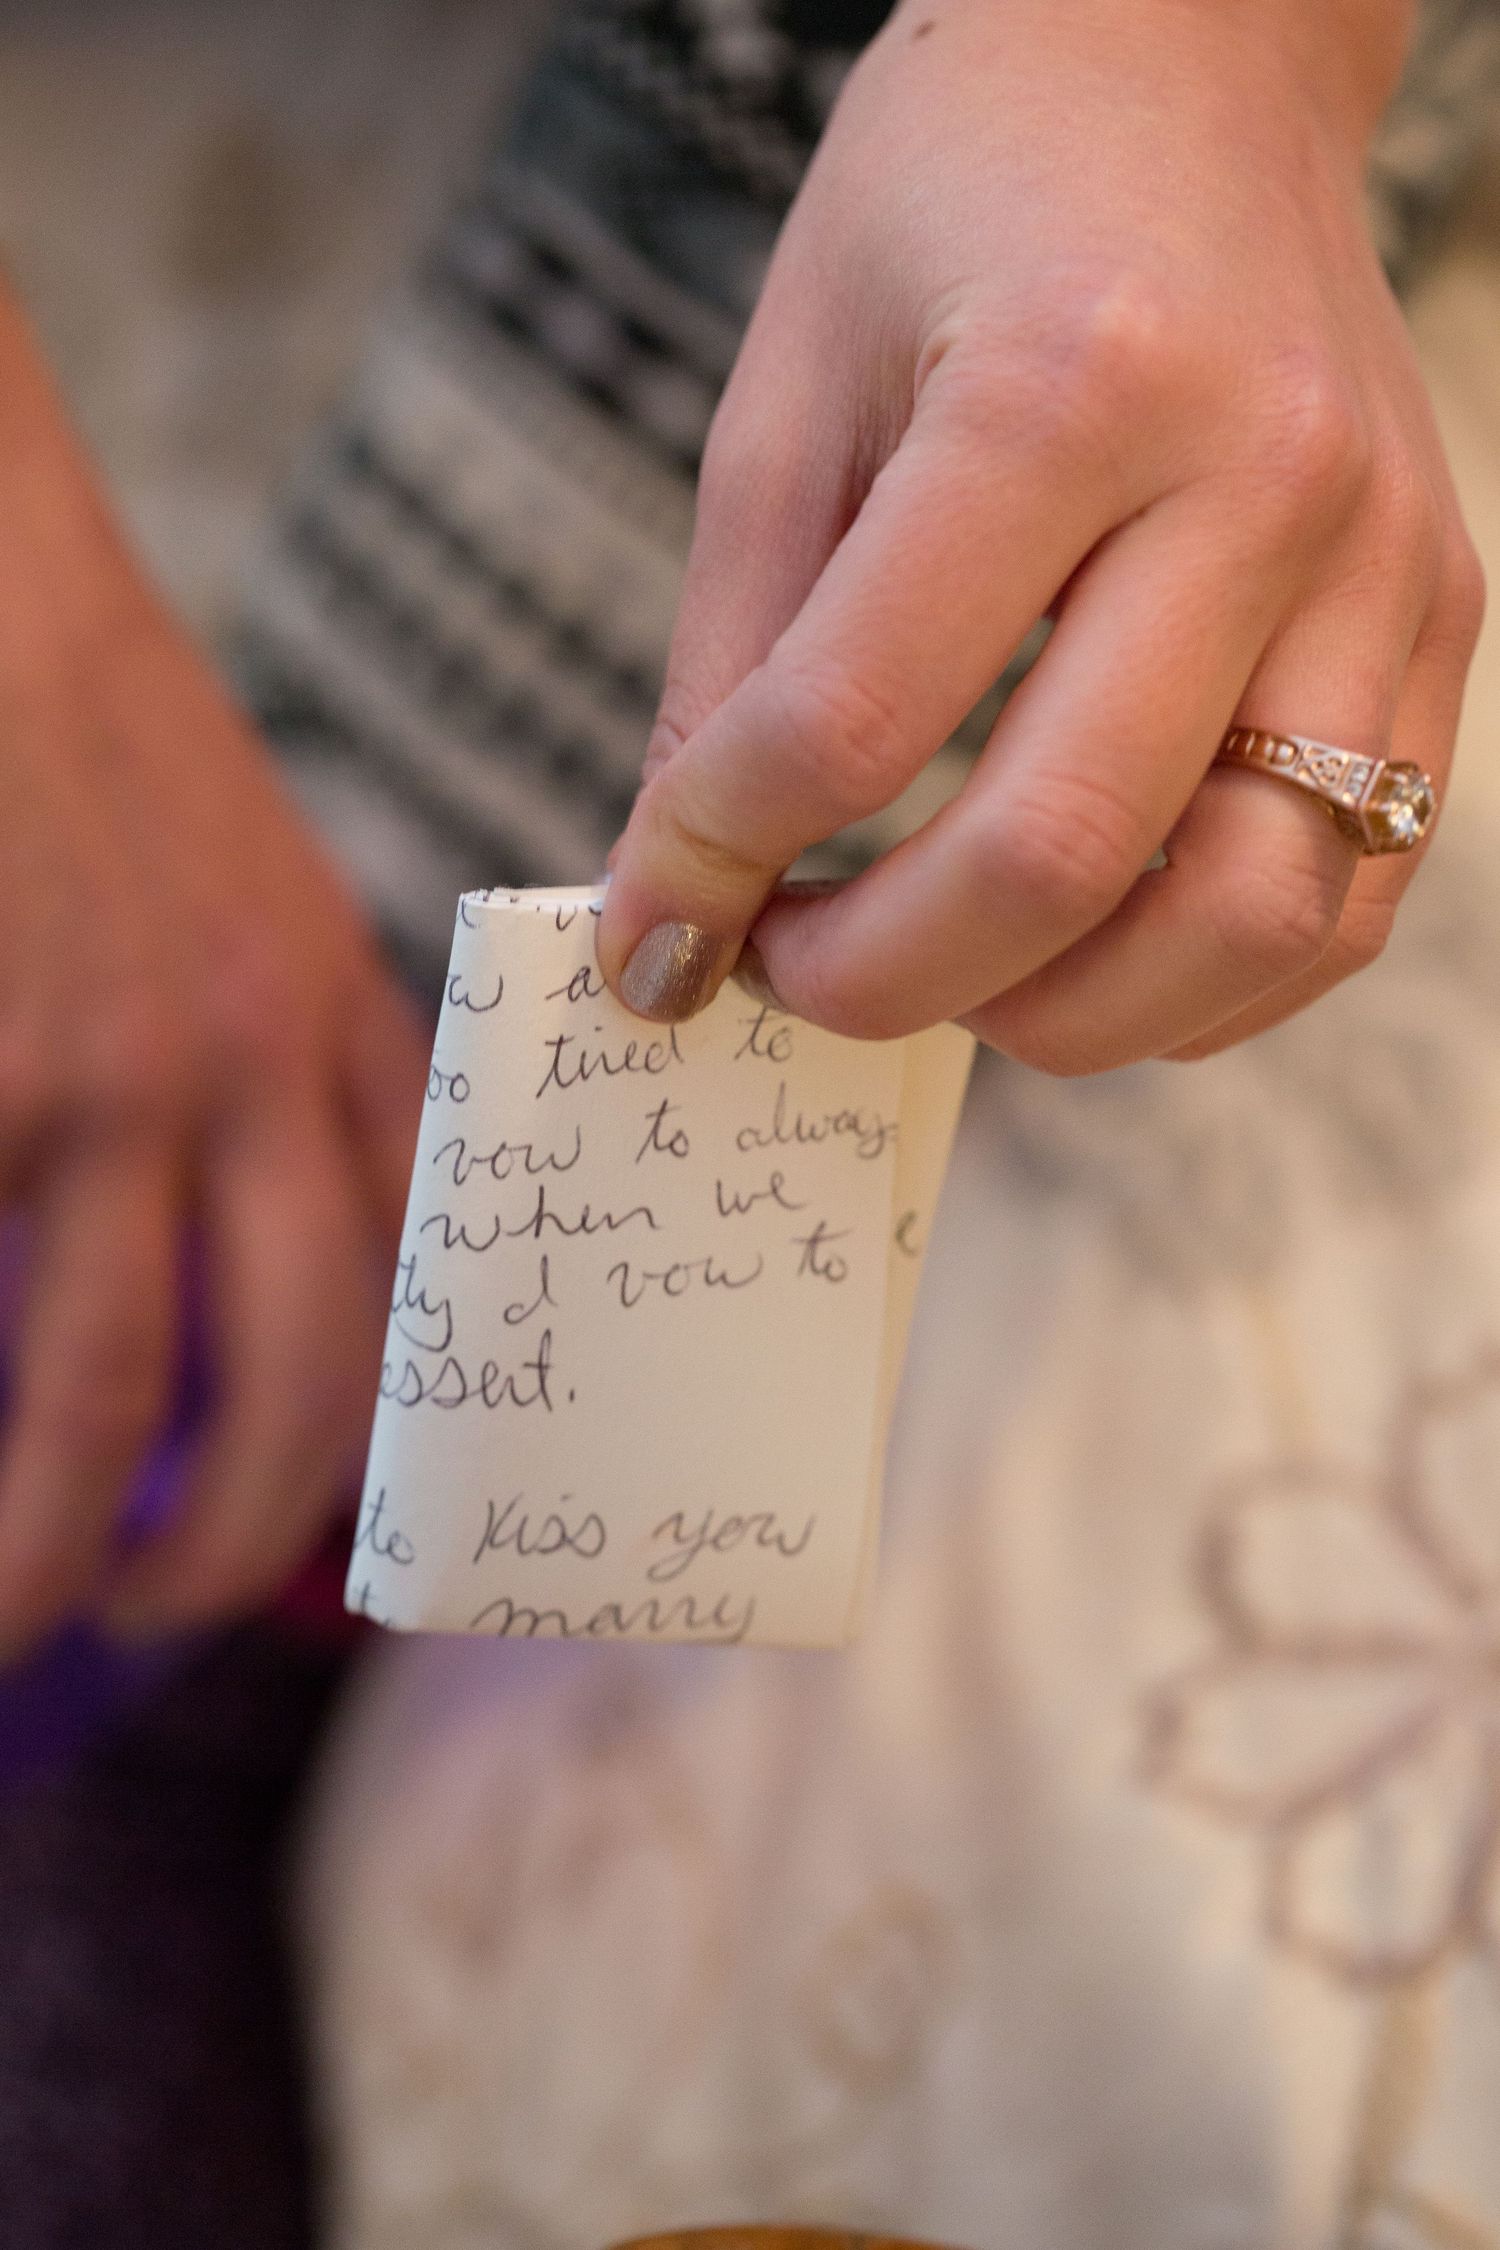 w a
oo tired to
vow to always
when we
ty I vow to
essert.
to kiss you
to marry